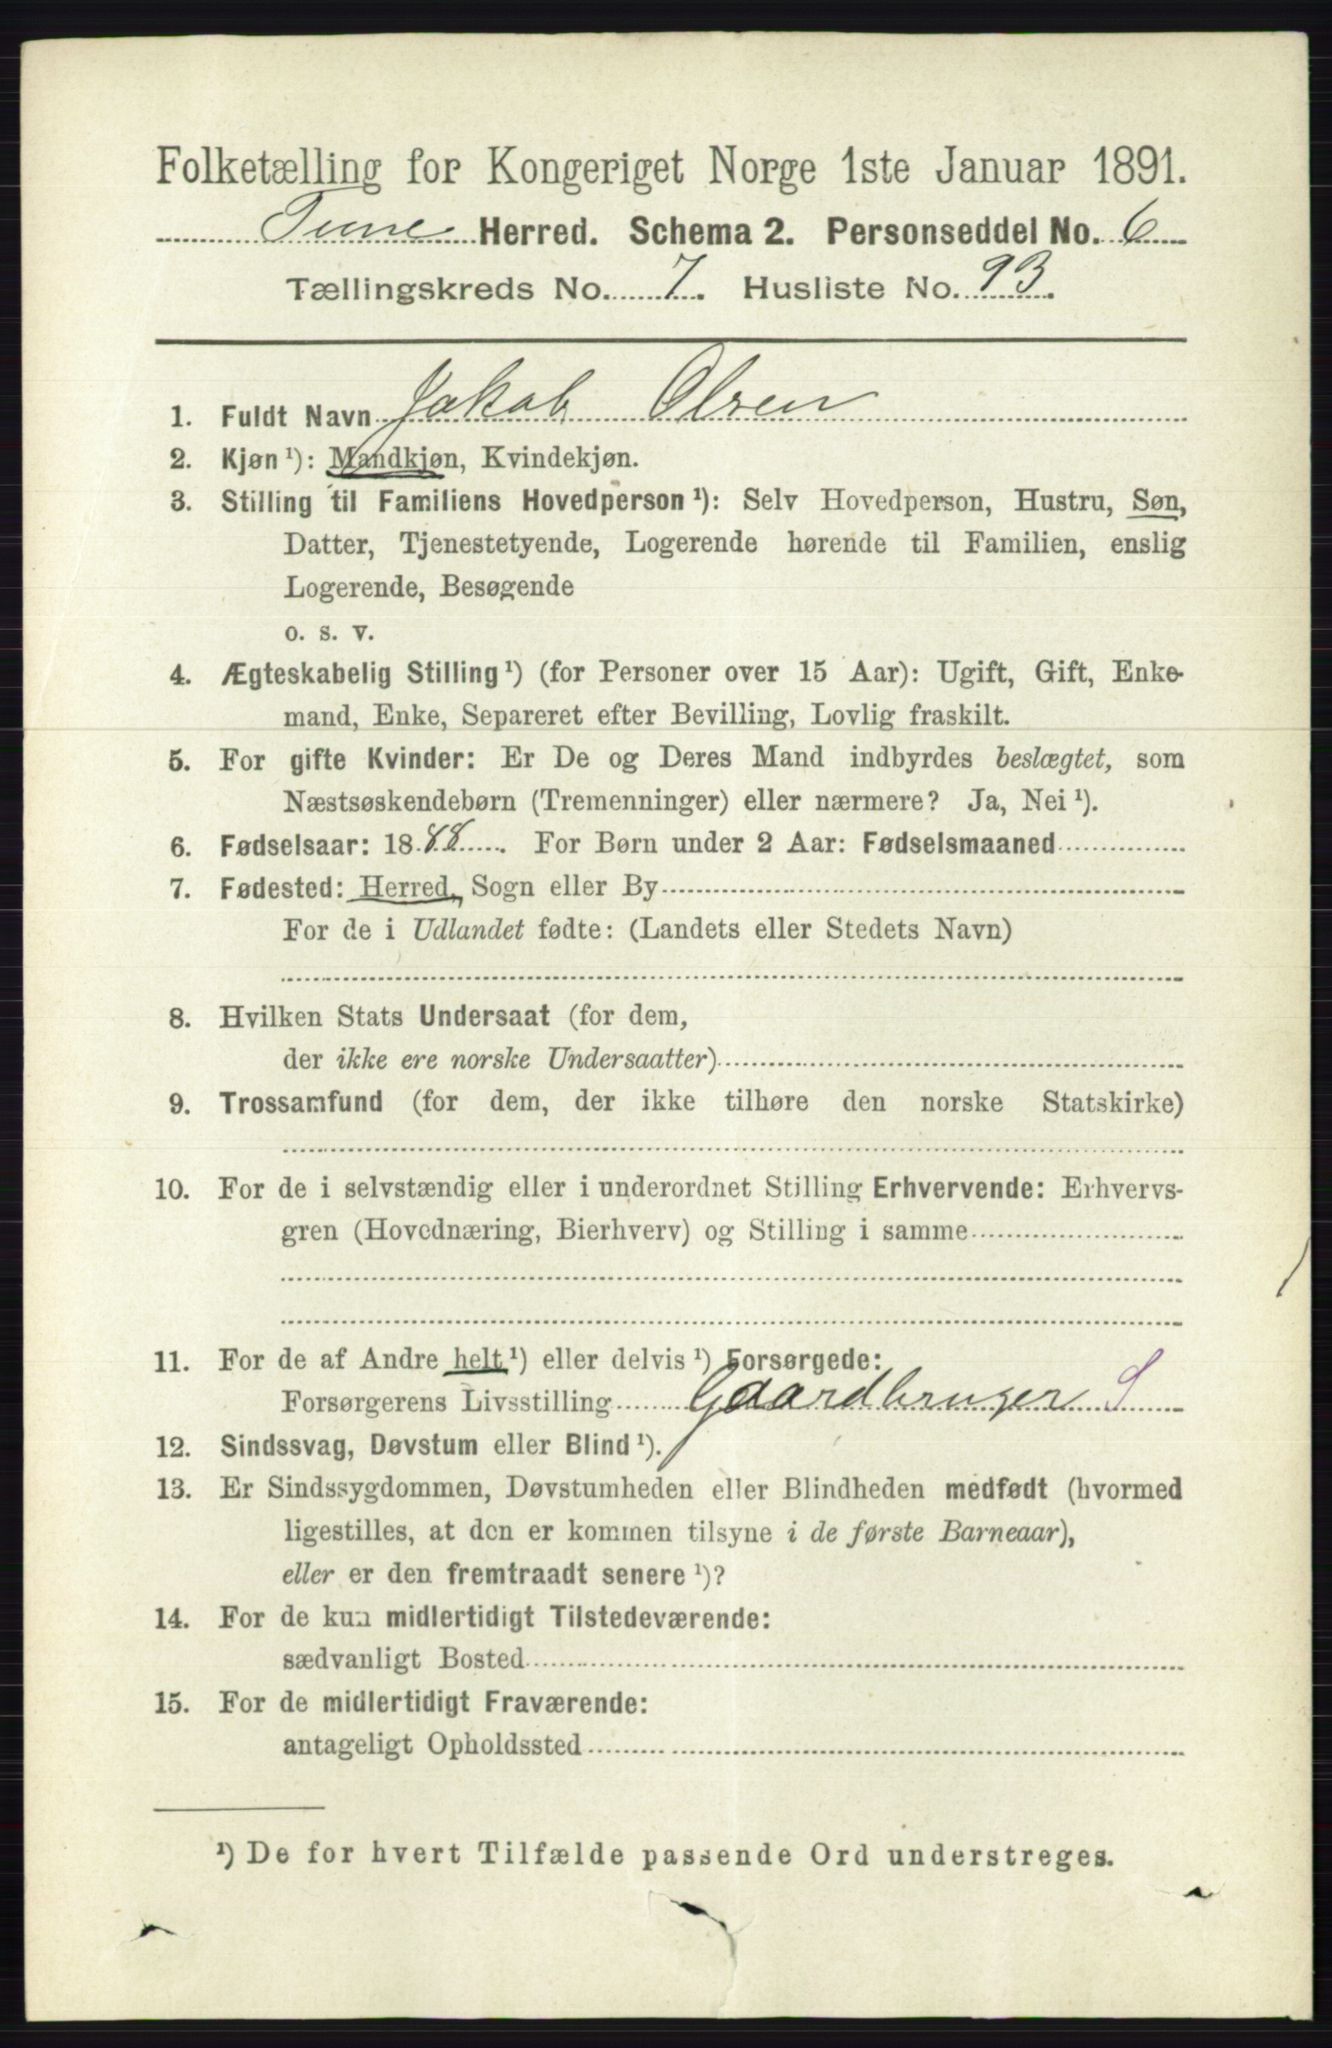 Folketælling for Kongeriget Norge 1ste Januar 1891.
Tune Herred. Schema 2. Personseddel No. 6
Tællingskreds No. 7. Husliste No. 93.
1. Fuldt Navn Jakob Olsen
2. Kjøn ¹): Mandkjøn, Kvindekjøn.
3. Stilling til Familiens Hovedperson ¹): Selv Hovedperson, Hustru, Søn,
Datter, Tjenestetyende, Logerende hørende til Familien, enslig
Logerende, Besøgende
o. s. v.
4. Ægteskabelig Stilling ¹) (for Personer over 15 Aar): Ugift, Gift, Enke-
mand, Enke, Separeret efter Bevilling, Lovlig fraskilt.
5. For gifte Kvinder: Er De og Deres Mand indbyrdes beslægtet, som
Næstsøskendebørn (Tremenninger) eller nærmere? Ja, Nei ¹).
6. Fødselsaar: 1888. For Børn under 2 Aar: Fødselsmaaned
7. Fødested: Herred, Sogn eller By
For de i Udlandet fødte: (Landets eller Stedets Navn)
8. Hvilken Stats Undersaat (for dem,
der ikke ere norske Undersaatter)
9. Trossamfund (for dem, der ikke tilhøre den norske Statskirke)
10. For de i selvstændig eller i underordnet Stilling Erhvervende: Erhvervs-
gren (Hovednæring, Bierhverv) og Stilling i samme
11. For de af Andre helt ¹) eller delvis ¹) Forsørgede:
Forsørgerens Livsstilling Gaardbruger S
12. Sindssvag, Døvstum eller Blind ¹).
13. Er Sindssygdommen, Døvstumheden eller Blindheden medfødt (hvormed
ligestilles, at den er kommen tilsyne i de første Barneaar),
eller er den fremtraadt senere ¹)?
14. For de kun midlertidigt Tilstedeværende:
sædvanligt Bosted
15. For de midlertidigt Fraværende:
antageligt Opholdssted
¹) De for hvert Tilfælde passende Ord understreges.